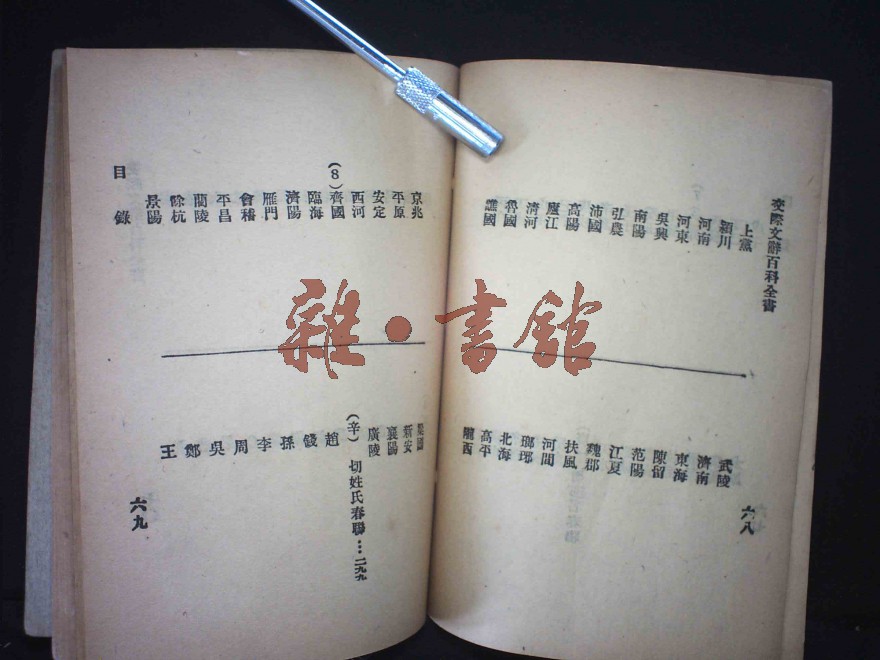 交際文辭百科全書
上黨
潁川
河南
河東
吳興
南陽
弘農
沛國
高陽
廬江
清河
魯國
譙國
武陵
濟南
東海
陳留
范陽
江夏
魏郡
扶風
河間
瑯琊
北海
高平
隴西
六八
京兆
平原
安定
西河
(8)齊國
臨海
濟陽
雁門
會稽
平昌
蘭陵
餘杭
景陽
目錄
新安
襄陽
廣陵
(辛)切姓氏春聯…二九九
趙
錢
孫
李
周
吳
鄭
王
六九
雜·書館